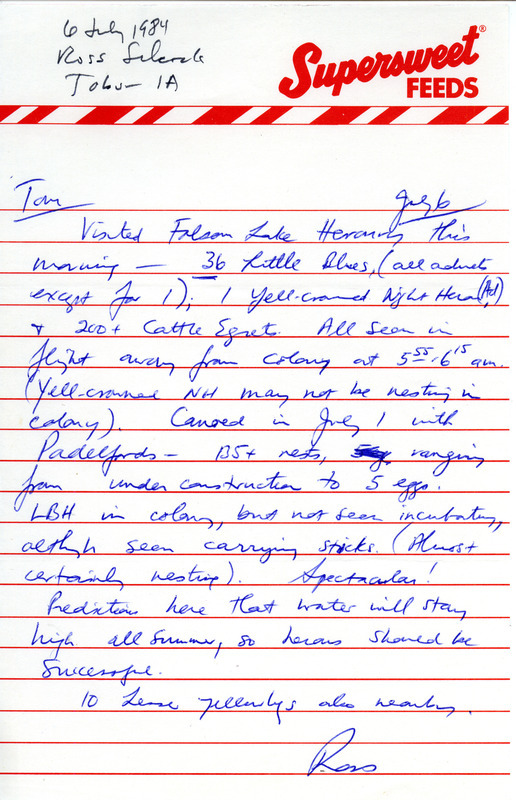 6 July 1984
Ross Silcock
Tabor IA
Supersweet®
FEEDS
Tom
July 6
Visited Folsom Lake Heronry this
morning — 36 Little Blues, (all adults
except for 1); 1 Yell-crowned Night Heron, (Ad)
+ 200+ Cattle Egrets. All seen in
flight away from colony at 5⁵⁵-6¹⁵ am.
(Yell-crowned NH may not be nesting in
colony). Canoed in July 1 with
Padelfords — 135+ nests, ranging
from under construction to 5 eggs.
LBH in colony, but not seen incubating,
although seen carrying sticks. (Almost
certainly nesting). Spectacular!
Prediction here that water will stay
high all summer, so herons should be
successful.
10 Lesser yellowlegs also nearby.
Ross